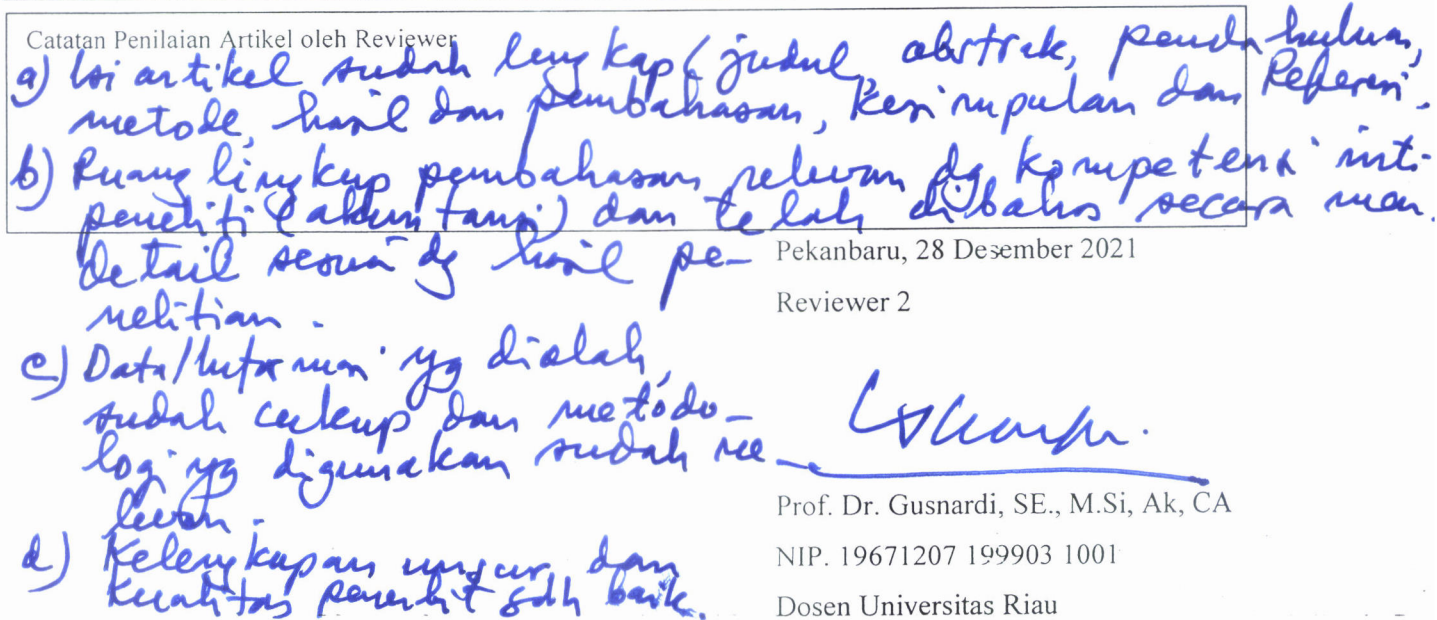 Catatan Penilaian Artikel oleh Reviewer
a) Isi artikel sudah lengkap (judul, abstrak, pendahuluan,
metode, hasil dan pembahasan, kesimpulan dan Referensi.
b) Ruang lingkup pembahasan relevan dg kompetensi inti
peneliti (akuntansi) dan telah dibahas secara men-
detail sesuai dg hasil pe-
nelitian.
c) Data/Informasi yg diolah
sudah cukup dan metodo-
logi yg digunakan sudah re-
levan.
d) Kelengkapan unsur dan
kualitas penerbit sdh baik.
Pekanbaru, 28 Desember 2021
Reviewer 2
Prof. Dr. Gusnardi, SE., M.Si, Ak, CA
NIP. 19671207 199903 1001
Dosen Universitas Riau